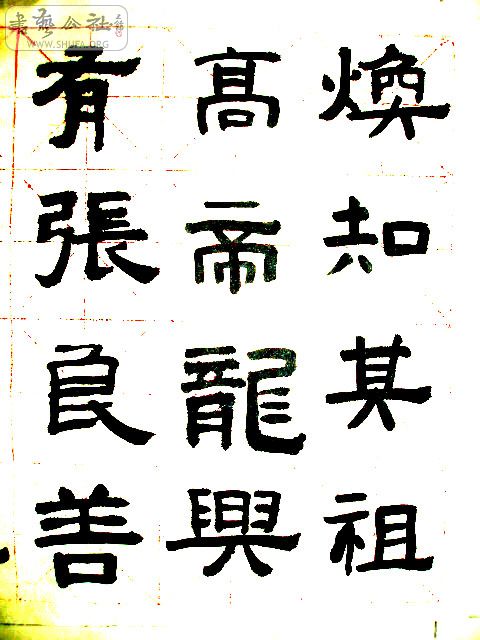 煥知其祖
高帝龍興
有張良善
書藝公社
WWW.SHUFA.ORG